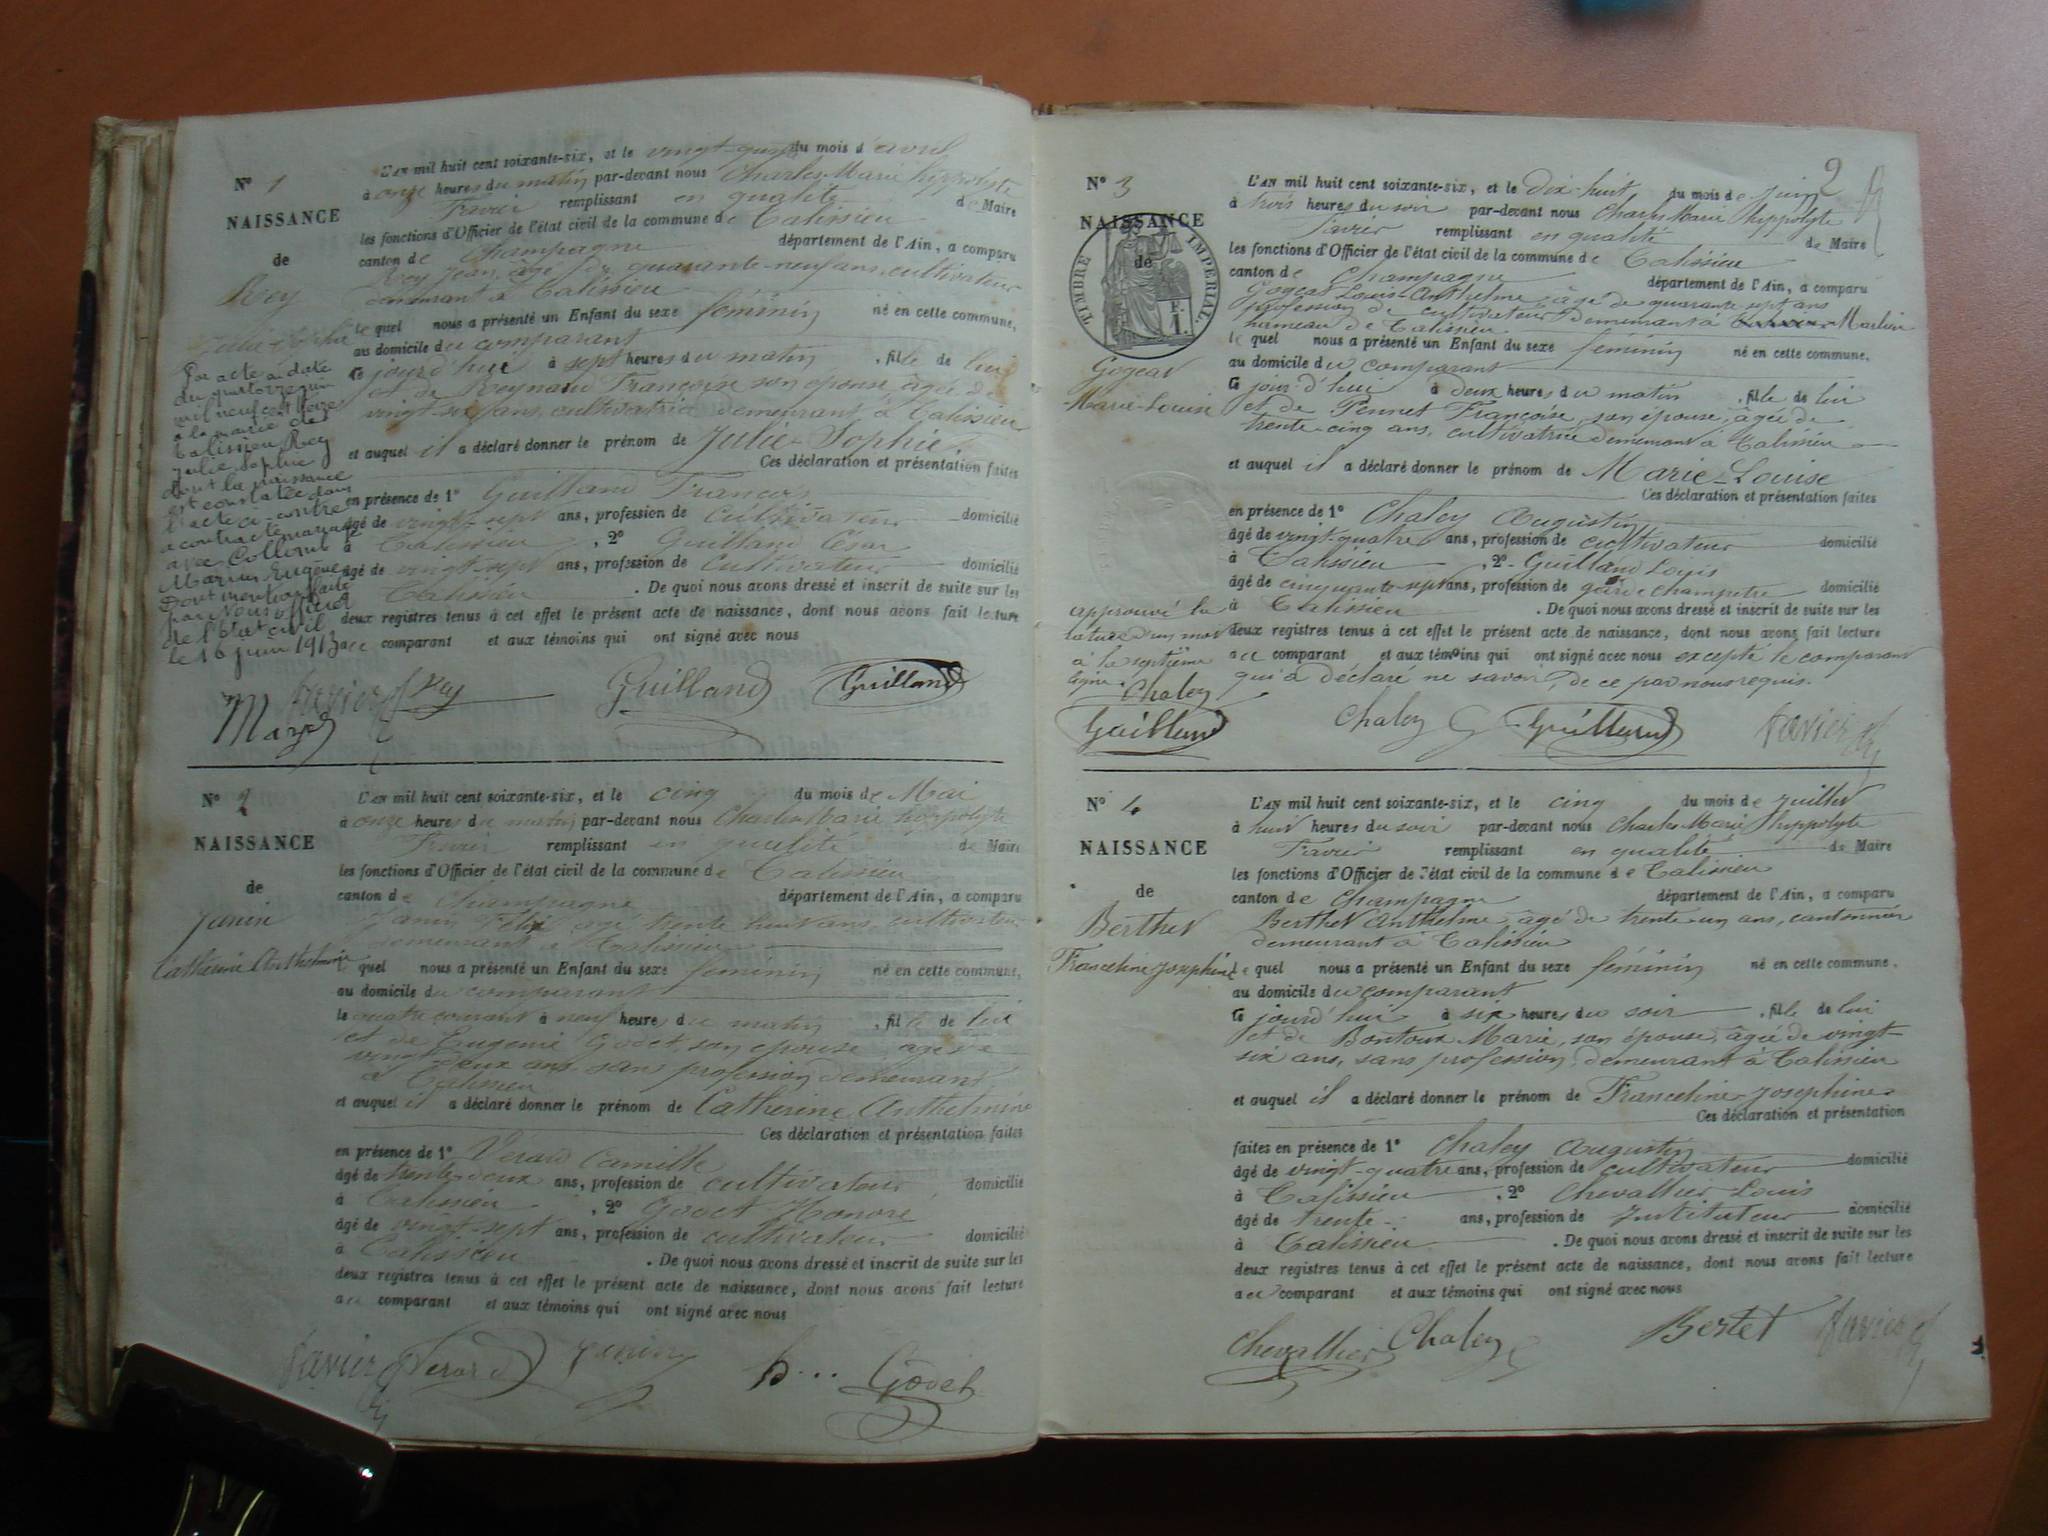 N° 1
NAISSANCE
de
Rey
Julie Sophie
Par acte en date
du quatorze juin
mil neuf cent treize
à la mairie de
Talissieu Rey
Julie Sophie
dont la naissance
est constatée dans
l'acte ci-contre
a contracté mariage
avec Collomb
Marius Eugène
Dont mention faite
par Nous officier
de l'état civil
le 16 juin 1913
L'AN mil huit cent soixante-six, et le vingt- du mois d'avril
à onze heures du matin par-devant nous Charles Marie hippolyte
Favier remplissant en qualité de Maire
les fonctions d'Officier de l'état civil de la commune de Talissieu
canton de Champagne département de l'Ain, a comparu
Rey Jean, âgé de quarante-neuf ans, cultivateur
demeurant à Talissieu
lequel nous a présenté un Enfant du sexe féminin né en cette commune,
au domicile du comparant
ce jourd'hui à sept heures du matin, fille de lui
et de Reynaud Françoise son épouse, âgée de
vingt-six ans, cultivatrice demeurant à Talissieu
et auquel il a déclaré donner le prénom de Julie-Sophie.
Ces déclaration et présentation faites
en présence de 1° Guilland François
âgé de vingt-sept ans, profession de cultivateur domicilié
à Talissieu, 2° Guilland César
âgé de vingt-sept ans, profession de cultivateur domicilié
Talissieu. De quoi nous avons dressé et inscrit de suite sur les
deux registres tenus à cet effet le présent acte de naissance, dont nous avons fait lecture
au comparant et aux témoins qui ont signé avec nous
Favier Rey Guilland Guilland
N° 2
NAISSANCE
de
Janin
Catherine Anthelmine
L'AN mil huit cent soixante-six, et le cinq du mois de Mai
à onze heures du matin par-devant nous Charles Marie hippolyte
Favier remplissant en qualité de Maire
les fonctions d'Officier de l'état civil de la commune de Talissieu
canton de Champagne département de l'Ain, a comparu
Janin Félix âgé trente huit ans, cultivateur
demeurant à Talissieu
lequel nous a présenté un Enfant du sexe féminin né en cette commune,
au domicile du comparant
le quatre courant à neuf heures du matin, fille de lui
et de Eugenie Godet, son épouse, agée de
vingt-deux ans sans profession, demeurant
à Talissieu
et auquel il a déclaré donner le prénom de Catherine Anthelmine
Ces déclaration et présentation faites
en présence de 1° Verard Camille
âgé de trente-deux ans, profession de cultivateur domicilié
à Talissieu, 2° Godet Honoré
âgé de vingt-sept ans, profession de cultivateur domicilié
à Talissieu. De quoi nous avons dressé et inscrit de suite sur les
deux registres tenus à cet effet le présent acte de naissance, dont nous avons fait lecture
au comparant et aux témoins qui ont signé avec nous
Favier Verard Janin Godet
2
N° 3
NAISSANCE
de
TIMBRE IMPERIAL
F.
1.
Gogeat
Marie-Louise
L'AN mil huit cent soixante-six, et le Dix-huit du mois de Juin
à trois heures du soir par-devant nous Charles Marie hippolyte
Favier remplissant en qualité de Maire
les fonctions d'Officier de l'état civil de la commune de Talissieu
canton de Champagne département de l'Ain, a comparu
Gogeat Louis-Anthelme, âgé de quarante-sept ans
profession de cultivateur, demeurant à
hameau de Talissieu
lequel nous a présenté un Enfant du sexe féminin né en cette commune,
au domicile du comparant
ce jour d'hui à deux heures du matin, fille de lui
et de Pennet Françoise, son épouse, âgée de
trente cinq ans, cultivatrice demeurant à Talissieu
et auquel il a déclaré donner le prénom de Marie-Louise
Ces déclaration et présentation faites
en présence de 1° Chaley Augustin
âgé de vingt-quatre ans, profession de cultivateur domicilié
à Talissieu, 2° Guilland Louis
âgé de cinquante-sept ans, profession de garde champetre domicilié
à Talissieu. De quoi nous avons dressé et inscrit de suite sur les
deux registres tenus à cet effet le présent acte de naissance, dont nous avons fait lecture
au comparant et aux témoins qui ont signé avec nous excepté le comparant
qui a déclaré ne savoir, de ce par nous requis.
approuvé la
rature d'un mot
à la septième
ligne.
Chaley
Guilland Chaley Guilland Favier
N° 4
NAISSANCE
de
Berthet
Franceline Josephine
L'AN mil huit cent soixante-six, et le cinq du mois de Juillet
à huit heures du soir par-devant nous Charles Marie hippolyte
Favier remplissant en qualité de Maire
les fonctions d'Officier de l'état civil de la commune de Talissieu
canton de Champagne département de l'Ain, a comparu
Berthet Anthelme, âgé de trente-un ans, cantonnier
demeurant à Talissieu
lequel nous a présenté un Enfant du sexe féminin né en cette commune,
au domicile du comparant
ce jourd'hui à six heures du soir, fille de lui
et de Bontoux Marie, son épouse, âgée de vingt-
six ans, sans profession, demeurant à Talissieu
et auquel il a déclaré donner le prénom de Franceline Josephine
Ces déclaration et présentation
faites en présence de 1° Chaley Augustin
âgé de vingt-quatre ans, profession de cultivateur domicilié
à Talissieu, 2° Chevallier Louis
âgé de trente ans, profession de Instituteur domicilié
à Talissieu. De quoi nous avons dressé et inscrit de suite sur les
deux registres tenus à cet effet le présent acte de naissance, dont nous avons fait lecture
au comparant et aux témoins qui ont signé avec nous
Chevallier Chaley Bertet Favier